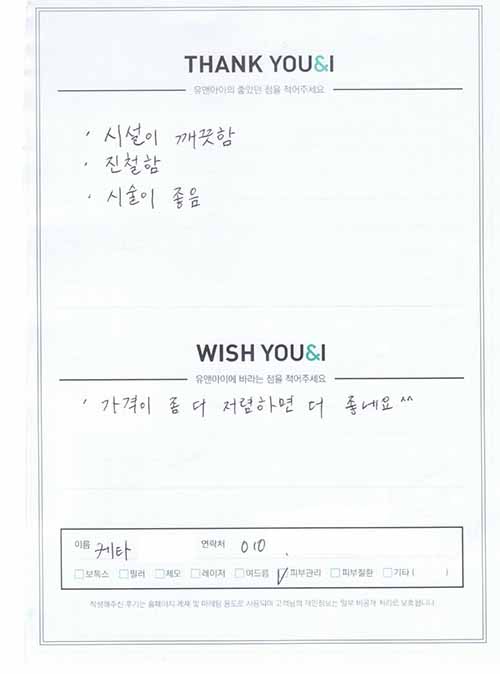 THANK YOU&I
유앤아이의 좋았던 점을 적어주세요
· 시설이 깨끗함
· 진철함
· 시술이 좋음
WISH YOU&I
유앤아이에 바라는 점을 적어주세요
· 가격이 좀 더 저렴하면 더 좋네요^^
이름 케타 연락처 010 .
보톡스 필러 제모 레이저 여드름 피부관리 피부질환 기타 ( )
작성해주신 후기는 홈페이지 게재 및 마케팅 용도로 사용되며 고객님의 개인정보는 일부 비공개 처리로 보호됩니다.